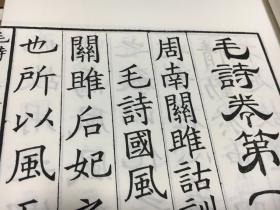 毛詩卷第一
周南關雎詁訓
毛詩國風
關雎后妃之
也所以風天
毛詩